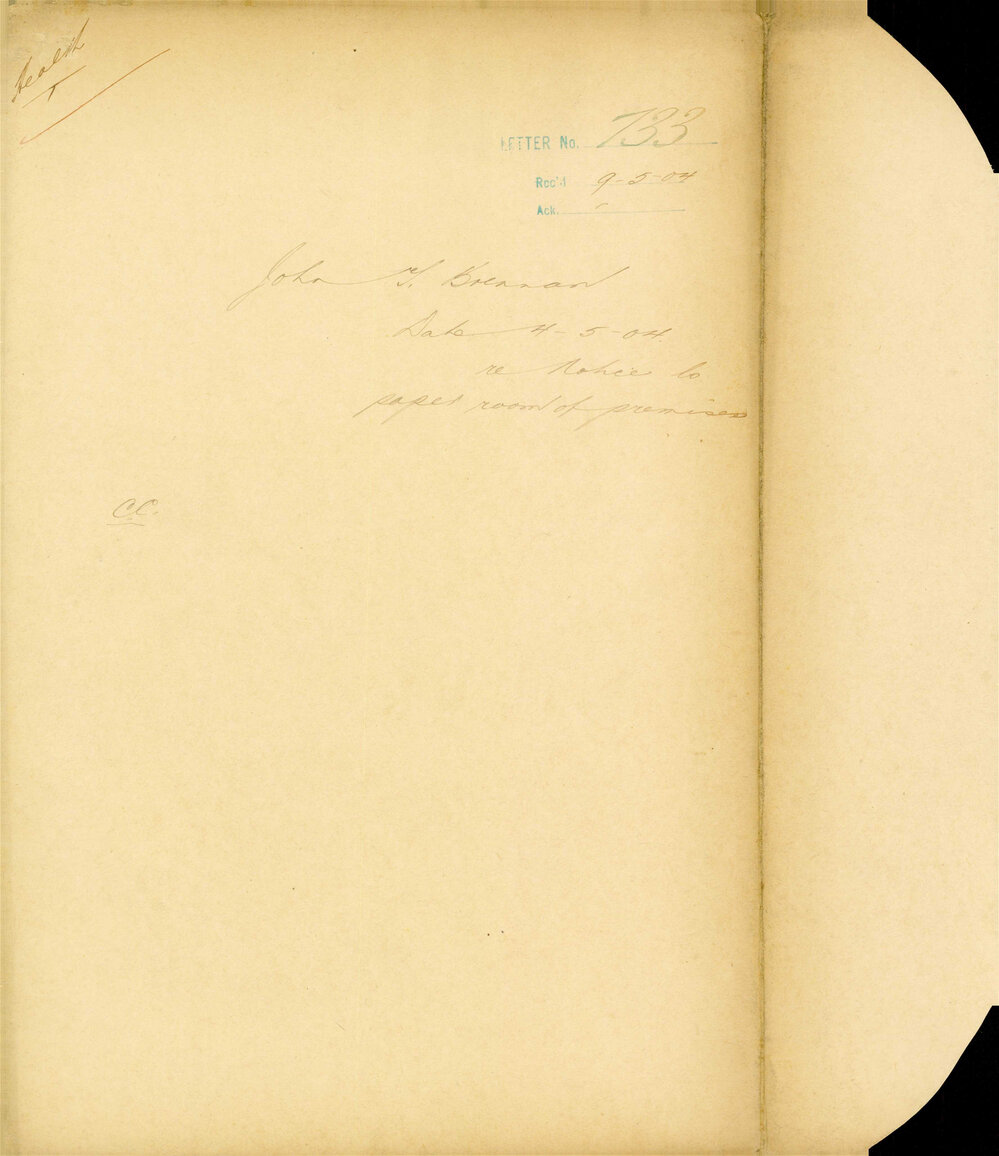 Health
T
LETTER No. 733
Rec'd 9-5-04
Ack.
John T. Brennan
Date 4-5-04.
re Notice to
paper room of premises
C.C.